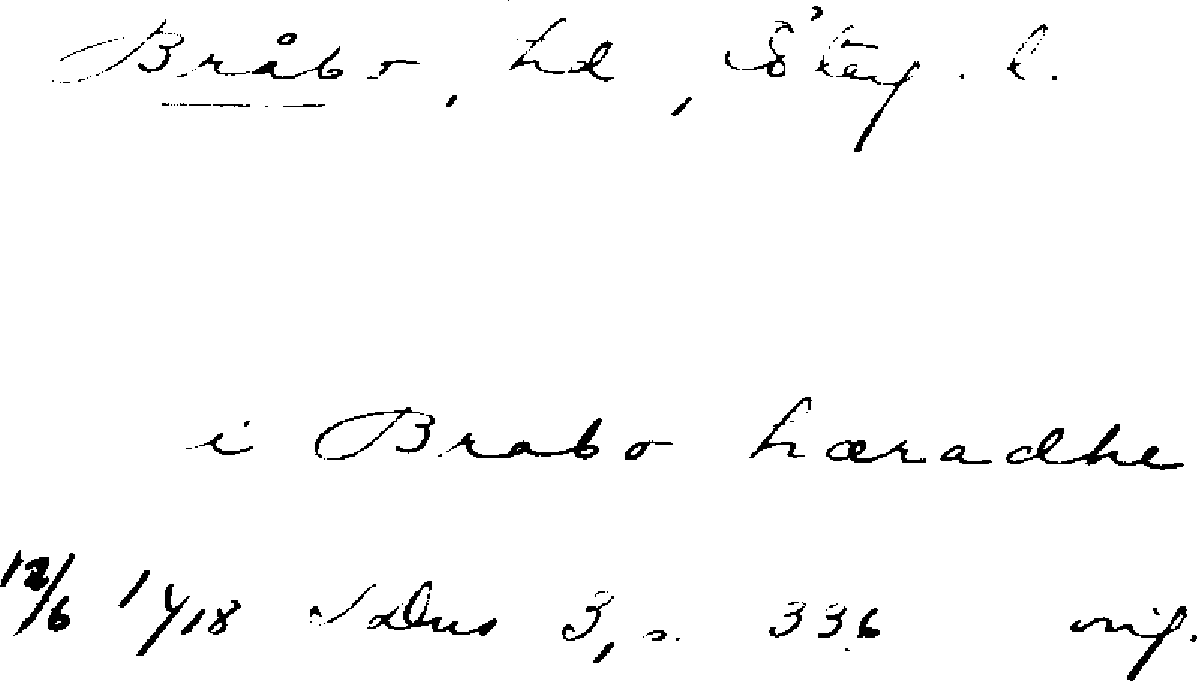 Bråbo, hd, Östерg. l.
i Brabo hæradhe
12/6 1418 SDns 3, s. 336 orig.